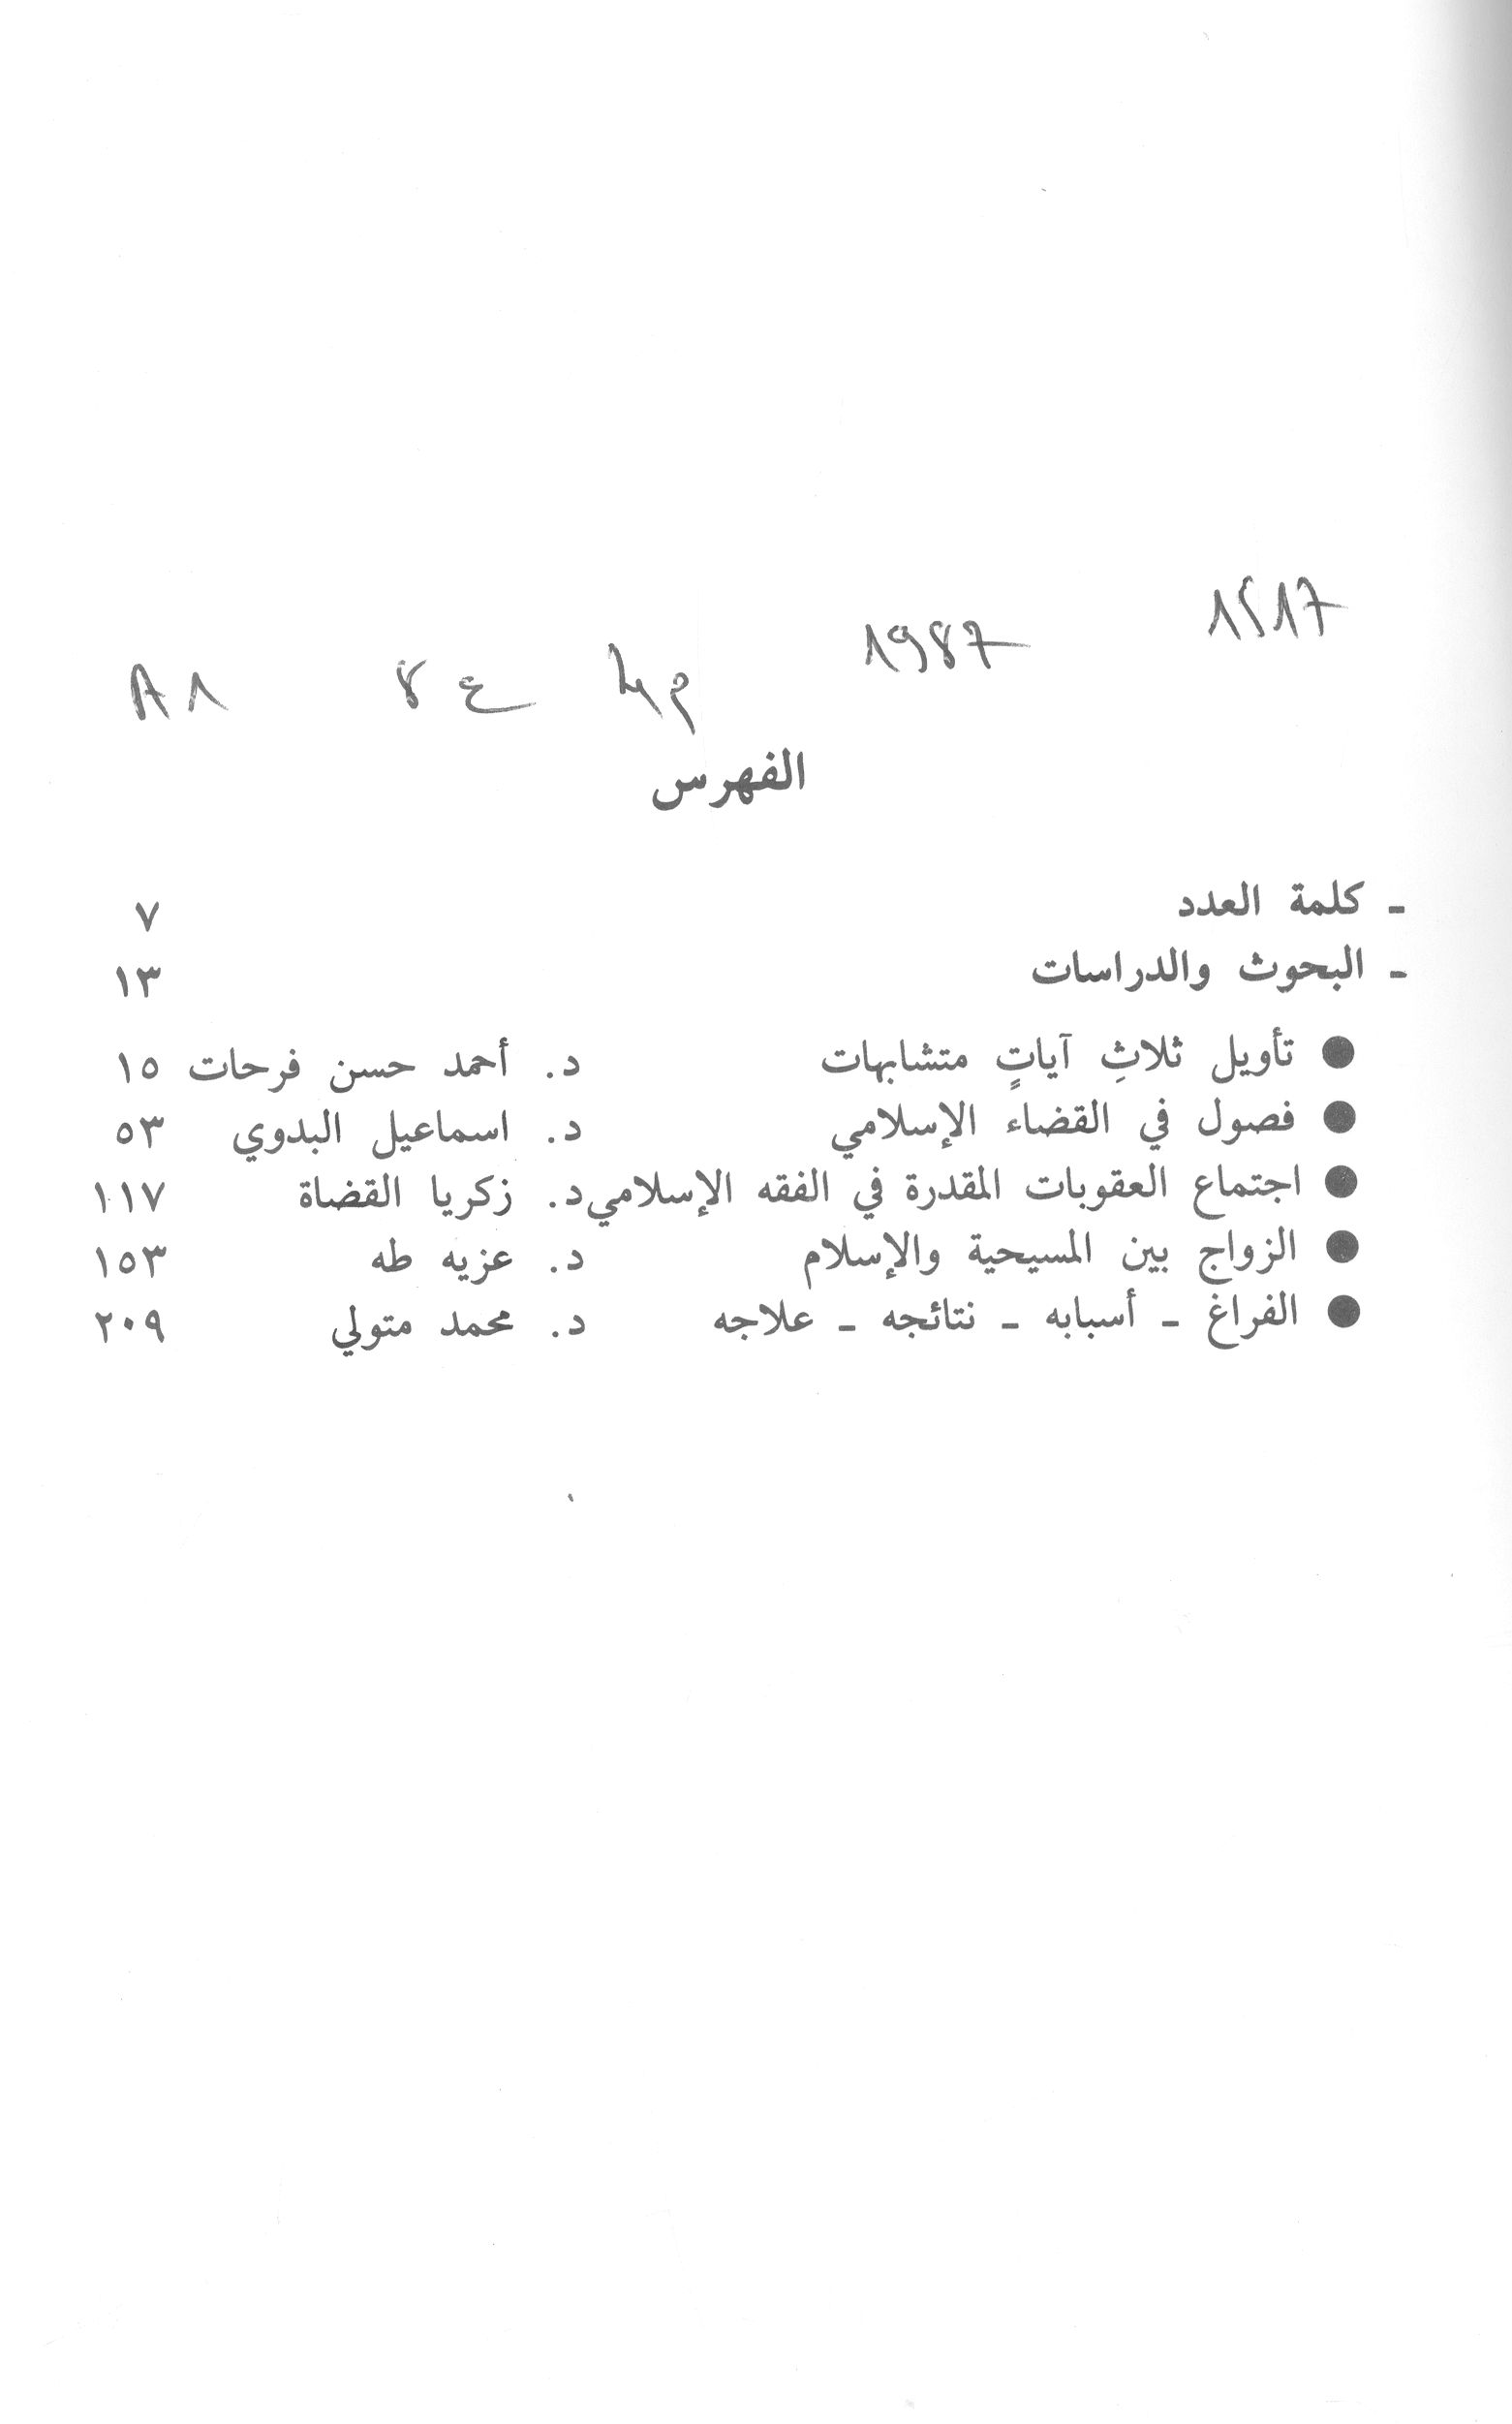 1987
الفهرس
- كلمة العدد ٧
- البحوث والدراسات ١٣
● تأويل ثلاثِ آياتٍ متشابهات د. أحمد حسن فرحات ١٥
● فصول في القضاء الإسلامي د. اسماعيل البدوي ٥٣
● اجتماع العقوبات المقدرة في الفقه الإسلامي د. زكريا القضاة ١١٧
● الزواج بين المسيحية والإسلام د. عزيه طه ١٥٣
● الفراغ - أسبابه - نتائجه - علاجه د. محمد متولي ٢٠٩